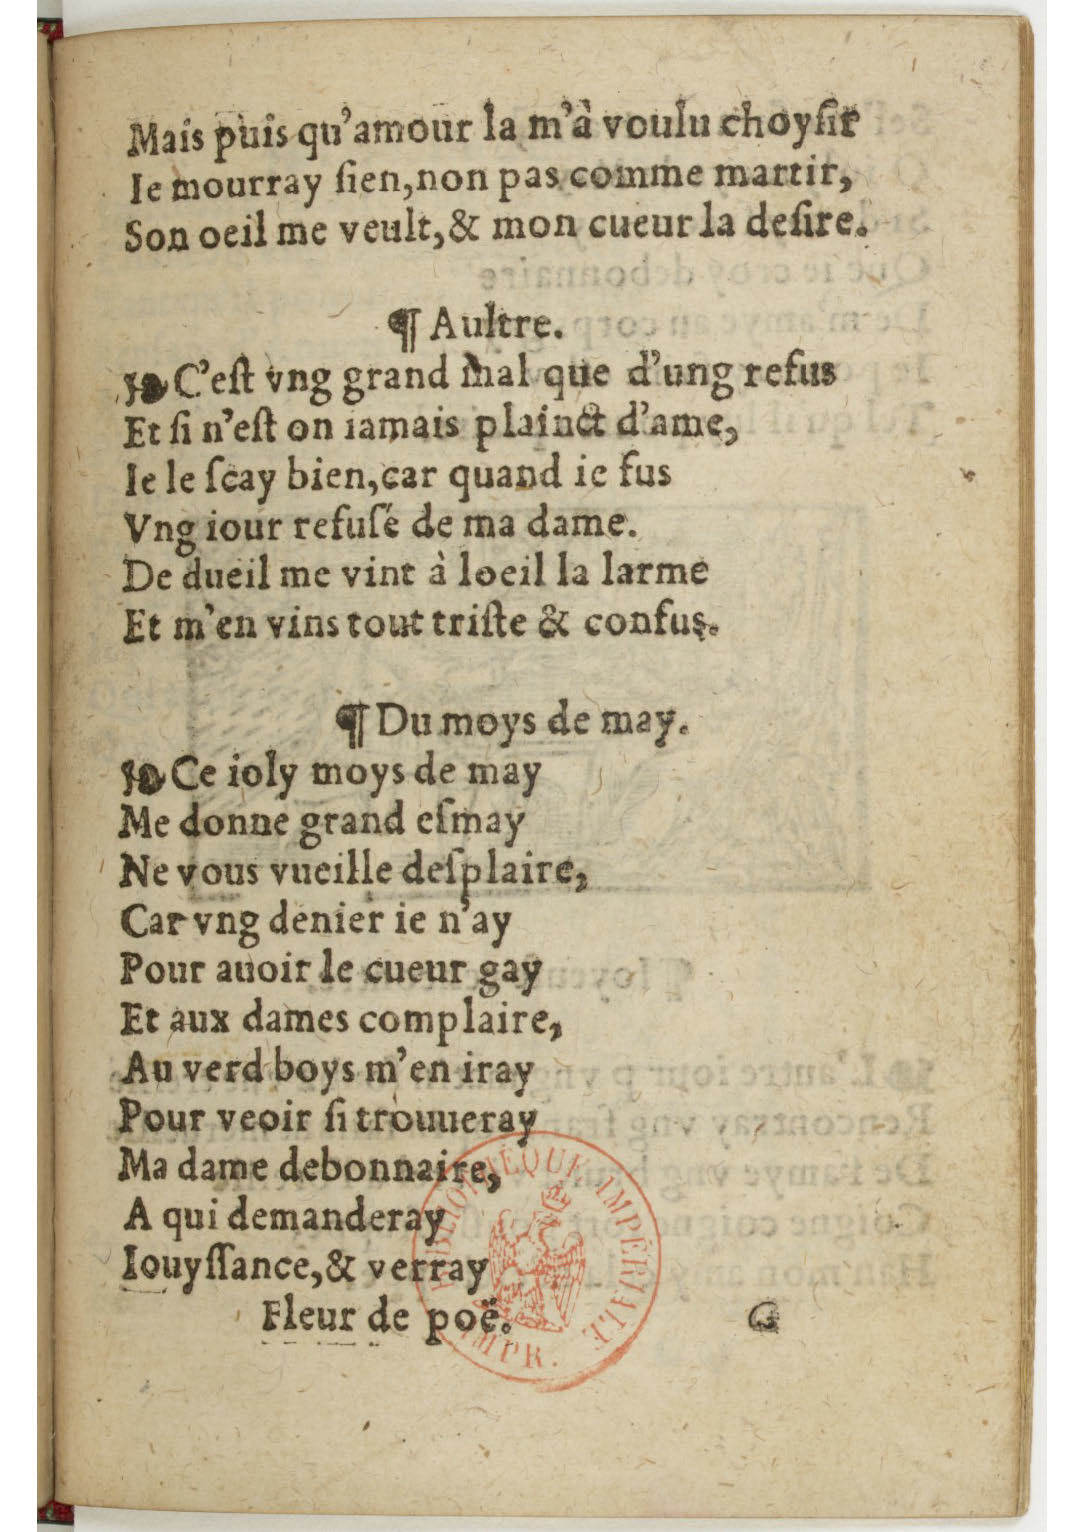 Mais puis qu'amour la m'à voulu choysir
Ie mourray ſien,non pas comme martir,
Son oeil me veult,& mon cueur la deſire.
¶ Aultre.
❧ C'eſt vng grand mal que d'ung refus
Et ſi n'eſt on iamais plainct d'ame,
Ie le ſcay bien,car quand ie fus
Vng iour refuſé de ma dame.
De dueil me vint à loeil la larme
Et m'en vins tout triſte & confus.
¶ Du moys de may.
❧ Ce ioly moys de may
Me donne grand eſmay
Ne vous vueille deſplaire,
Car vng denier ie n'ay
Pour auoir le cueur gay
Et aux dames complaire,
Au verd boys m'en iray
Pour veoir ſi trouueray
Ma dame debonnaire,
A qui demanderay
Iouyſſance,& verray
Fleur de poë. G
BIBLIOTHEQUE IMPÉRIALE
IMPR.